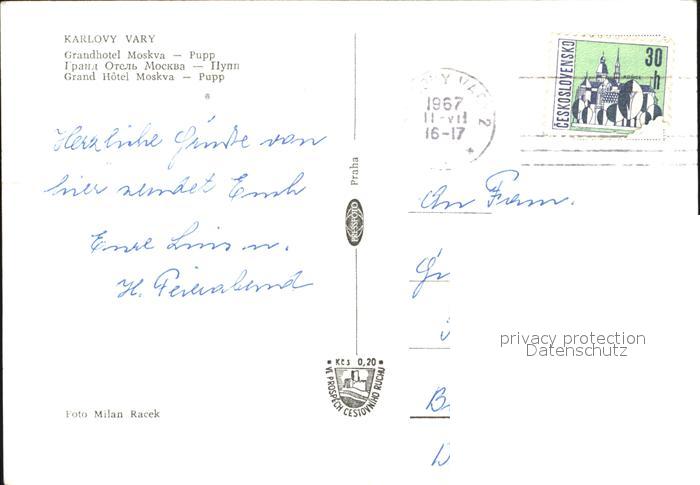 KARLOVY VARY
Grandhotel Moskva — Pupp
Гранд Отель Москва — Пупп
Grand Hôtel Moskva — Pupp
Herzliche Grüße von
hier sendet Euch
Eure u.
H. Feierabend
Foto Milan Racek
Praha
PRESSFOTO
Kčs 0,20
VE PROSPĚCH CESTOVNÍHO RUCHU
VARY 2
1967
11-VII
16-17
ČESKOSLOVENSKO
30 h
An Fam.
privacy protection
Datenschutz